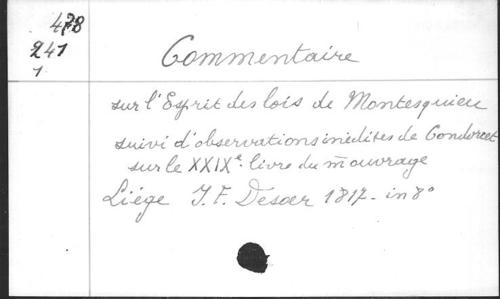 478
241
1
Commentaire
sur l'Esprit des lois de Montesquieu
suivi d'observations inédites de Condorcet
sur le XXIXe livre du m̄ ouvrage
Liége J. F. Desoer 1817 - in 8°